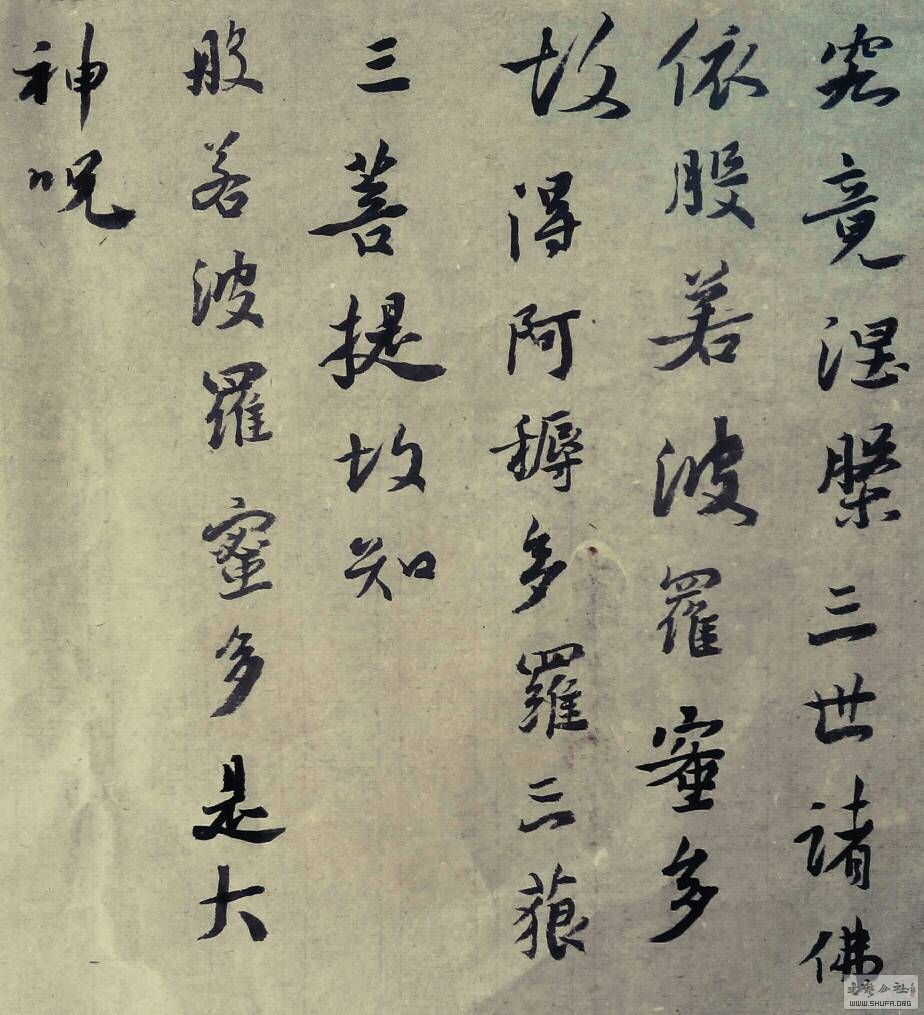 究竟涅槃三世諸佛
依般若波羅蜜多
故得阿耨多羅三藐
三菩提故知
般若波羅蜜多是大
神咒
WWW.SHUFA.ORG